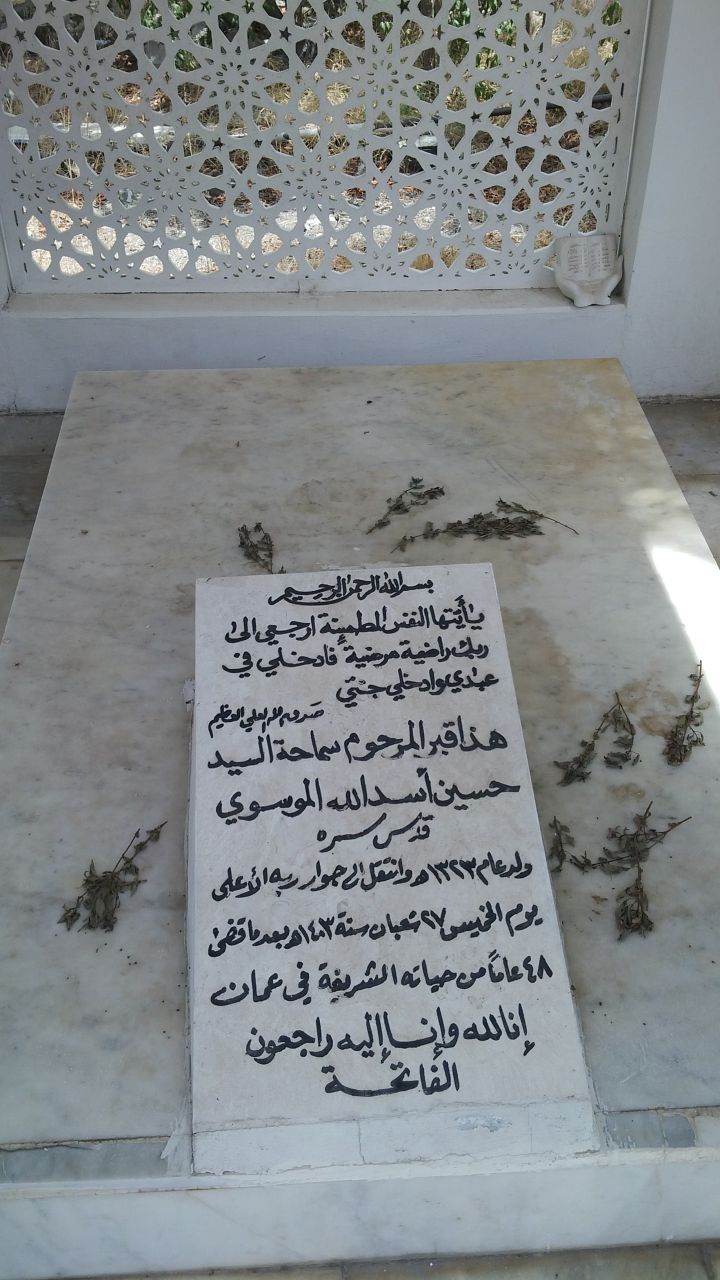 بسم الله الرحمن الرحيم
يٰأيتها النفس المطمئنة ارجعي الى
ربك راضية مرضية فادخلي في
عبادي وادخلي جنتي
صدق الله العلي العظيم
هذا قبر المرحوم سماحة السيد
حسين أسد الله الموسوي
قدس سره
ولد عام ١٣٢٣ه‍ وانتقل الى جوار ربه الأعلى
يوم الخميس ٢٧ شعبان سنة ١٤٠٣ه‍ بعد ما قضى
٤٨ عاماً من حياته الشريفة في عمان
إنا لله وإنا إليه راجعون
الفاتحة